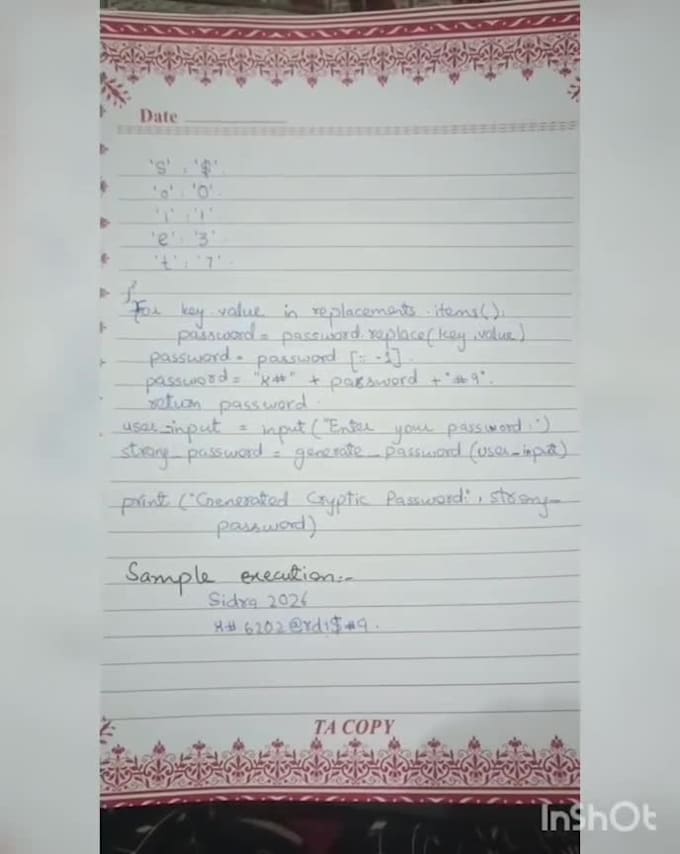 Date
'S' : '$'
'o' : '0'
'i' : '!'
'e' : '3'
't' : '7'
}
For key, value in replacements.items():
password = password.replace(key, value)
password = password [: -1]
password = "X#" + password + "#9".
return password.
user_input = input("Enter your password:")
strong_password = generate_password (user_input)
print ("Generated Cryptic Password:", strong_
password)
Sample execution:-
Sidra 2026
X# 6202 @rd!$#9.
TA COPY
InShOt